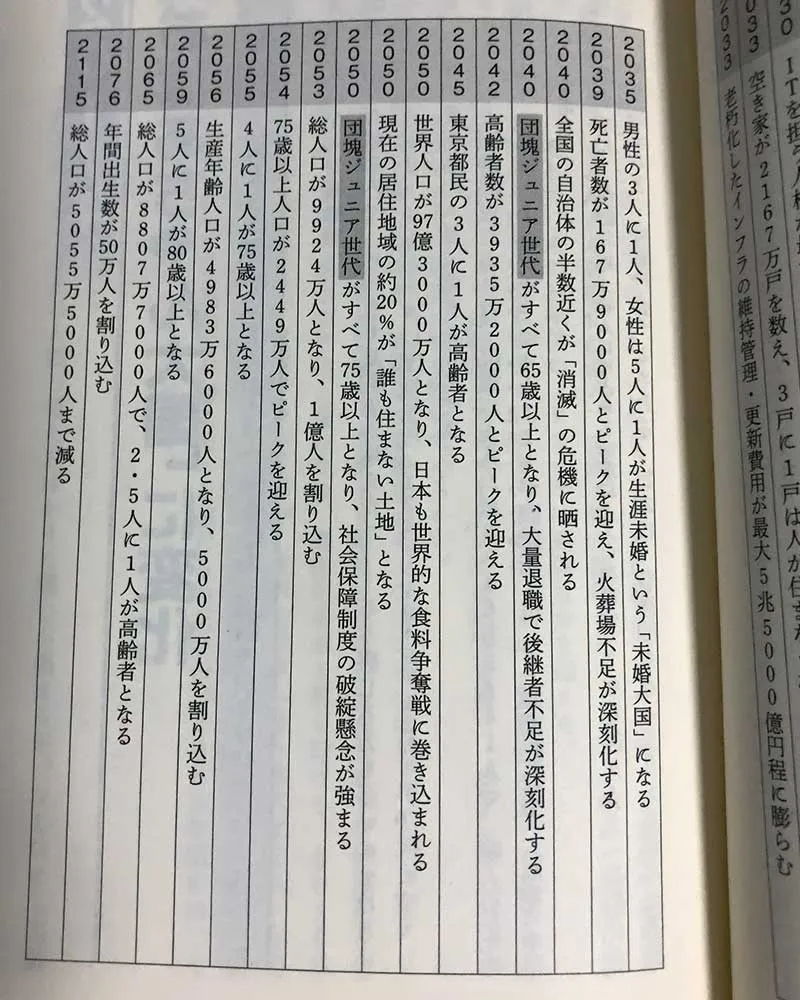 2033 空き家が2167万戸を数え、3戸に1戸は人が住
2033 老朽化したインフラの維持管理・更新費用が最大5兆5000億円程に膨らむ
2035 男性の3人に1人、女性は5人に1人が生涯未婚という「未婚大国」になる
2039 死亡者数が167万9000人とピークを迎え、火葬場不足が深刻化する
2040 全国の自治体の半数近くが「消滅」の危機に晒される
2040 団塊ジュニア世代がすべて65歳以上となり、大量退職で後継者不足が深刻化する
2042 高齢者数が3935万2000人とピークを迎える
2045 東京都民の3人に1人が高齢者となる
2050 世界人口が97億3000万人となり、日本も世界的な食料争奪戦に巻き込まれる
2050 現在の居住地域の約20%が「誰も住まない土地」となる
2050 団塊ジュニア世代がすべて75歳以上となり、社会保障制度の破綻懸念が強まる
2053 総人口が9924万人となり、1億人を割り込む
2054 75歳以上人口が2449万人でピークを迎える
2055 4人に1人が75歳以上となる
2056 生産年齢人口が4983万6000人となり、5000万人を割り込む
2059 5人に1人が80歳以上となる
2065 総人口が8807万7000人で、2・5人に1人が高齢者となる
2076 年間出生数が50万人を割り込む
2115 総人口が5055万5000人まで減る